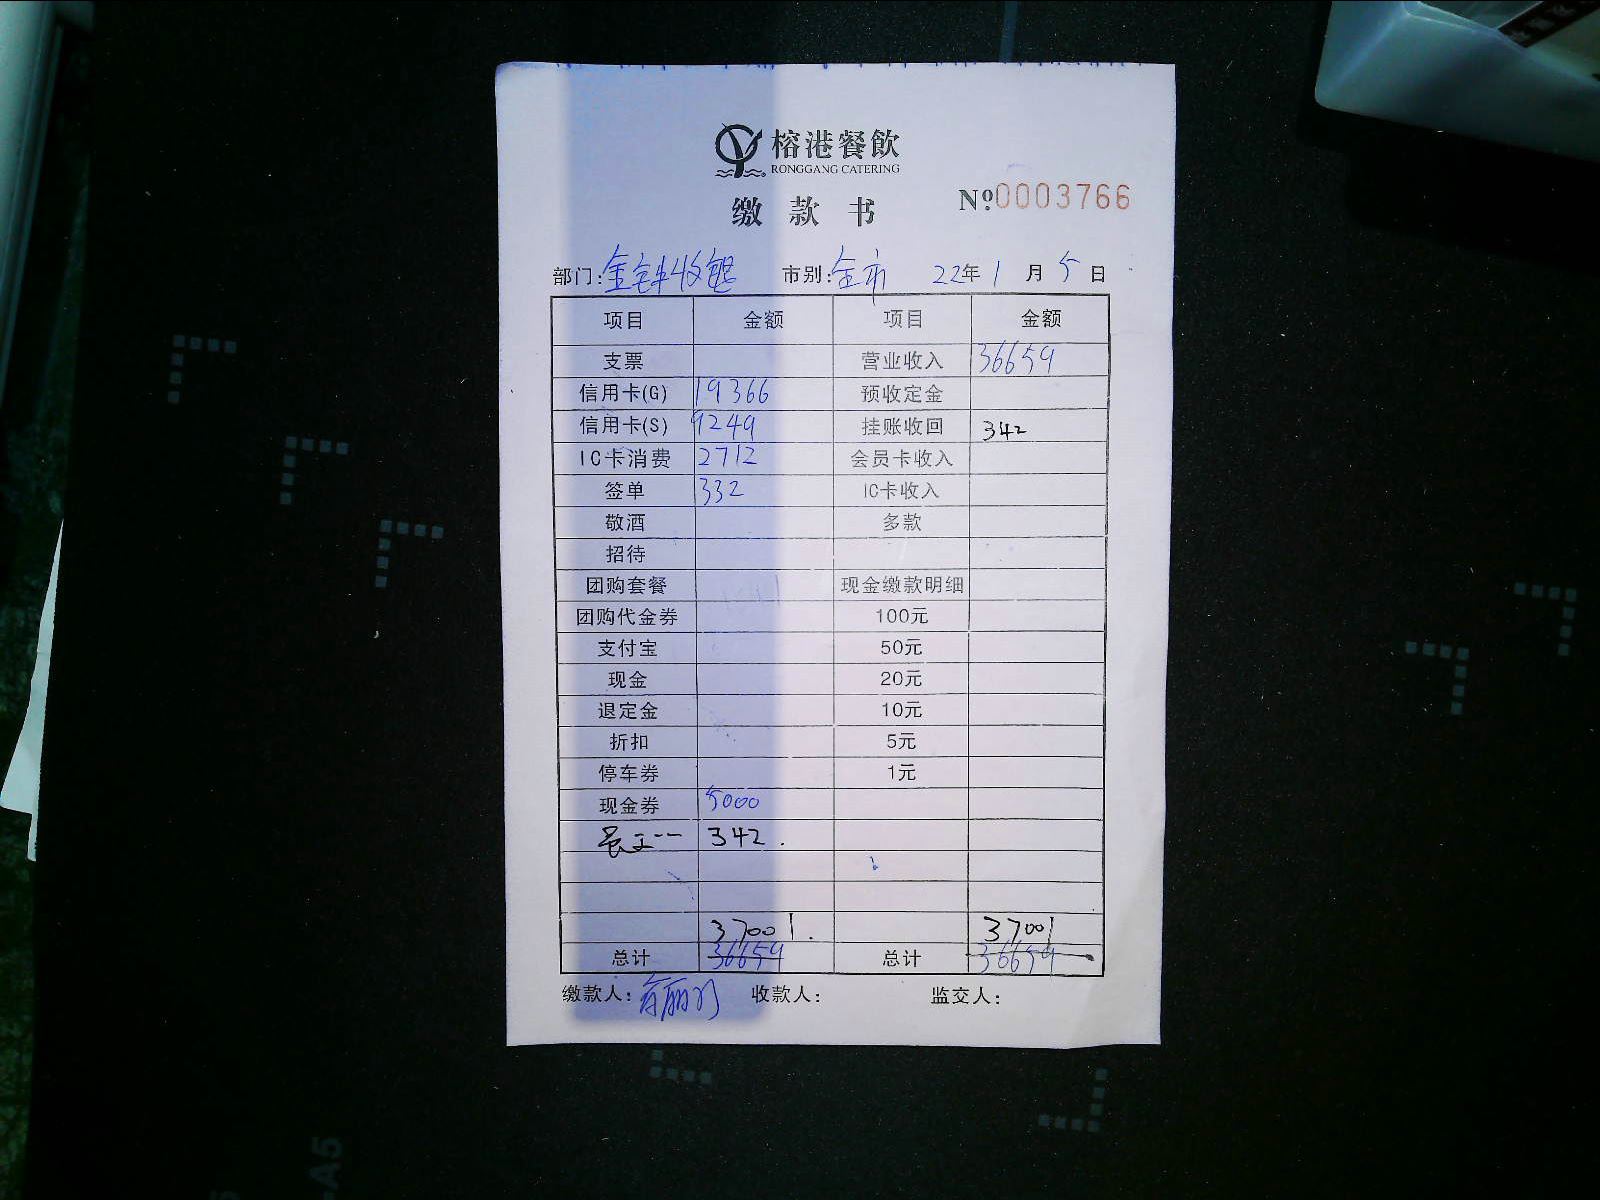 榕港餐飲
RONGGANG CATERING
缴款书 №0003766
部门: 市别:全市 22年1月5日
项目 金额 项目 金额
支票 营业收入 36659
信用卡(G) 19366 预收定金
信用卡(S) 9249 挂账收回 342
IC卡消费 2712 会员卡收入
签单 332 IC卡收入
敬酒 多款
招待
团购套餐 现金缴款明细
团购代金券 100元
支付宝 50元
现金 20元
退定金 10元
折扣 5元
停车券 1元
现金券 5000
342.
37001. 37001
总计 36659 总计 36659
缴款人: 收款人: 监交人:
A5